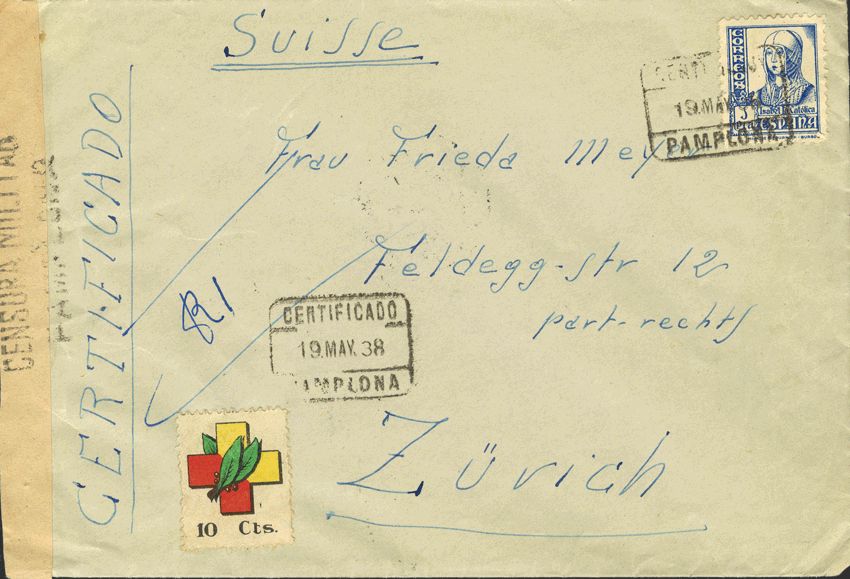 Suisse
CORREOS
Isabel Católica
ESPAÑA
19.MAY.38
PAMPLONA
Frau Frieda Mey
Feldegg-str 12
part-rechts
Zürich
CERTIFICADO
R1
CERTIFICADO
19.MAY.38
PAMPLONA
10 Cts.
CENSURA MILITAR